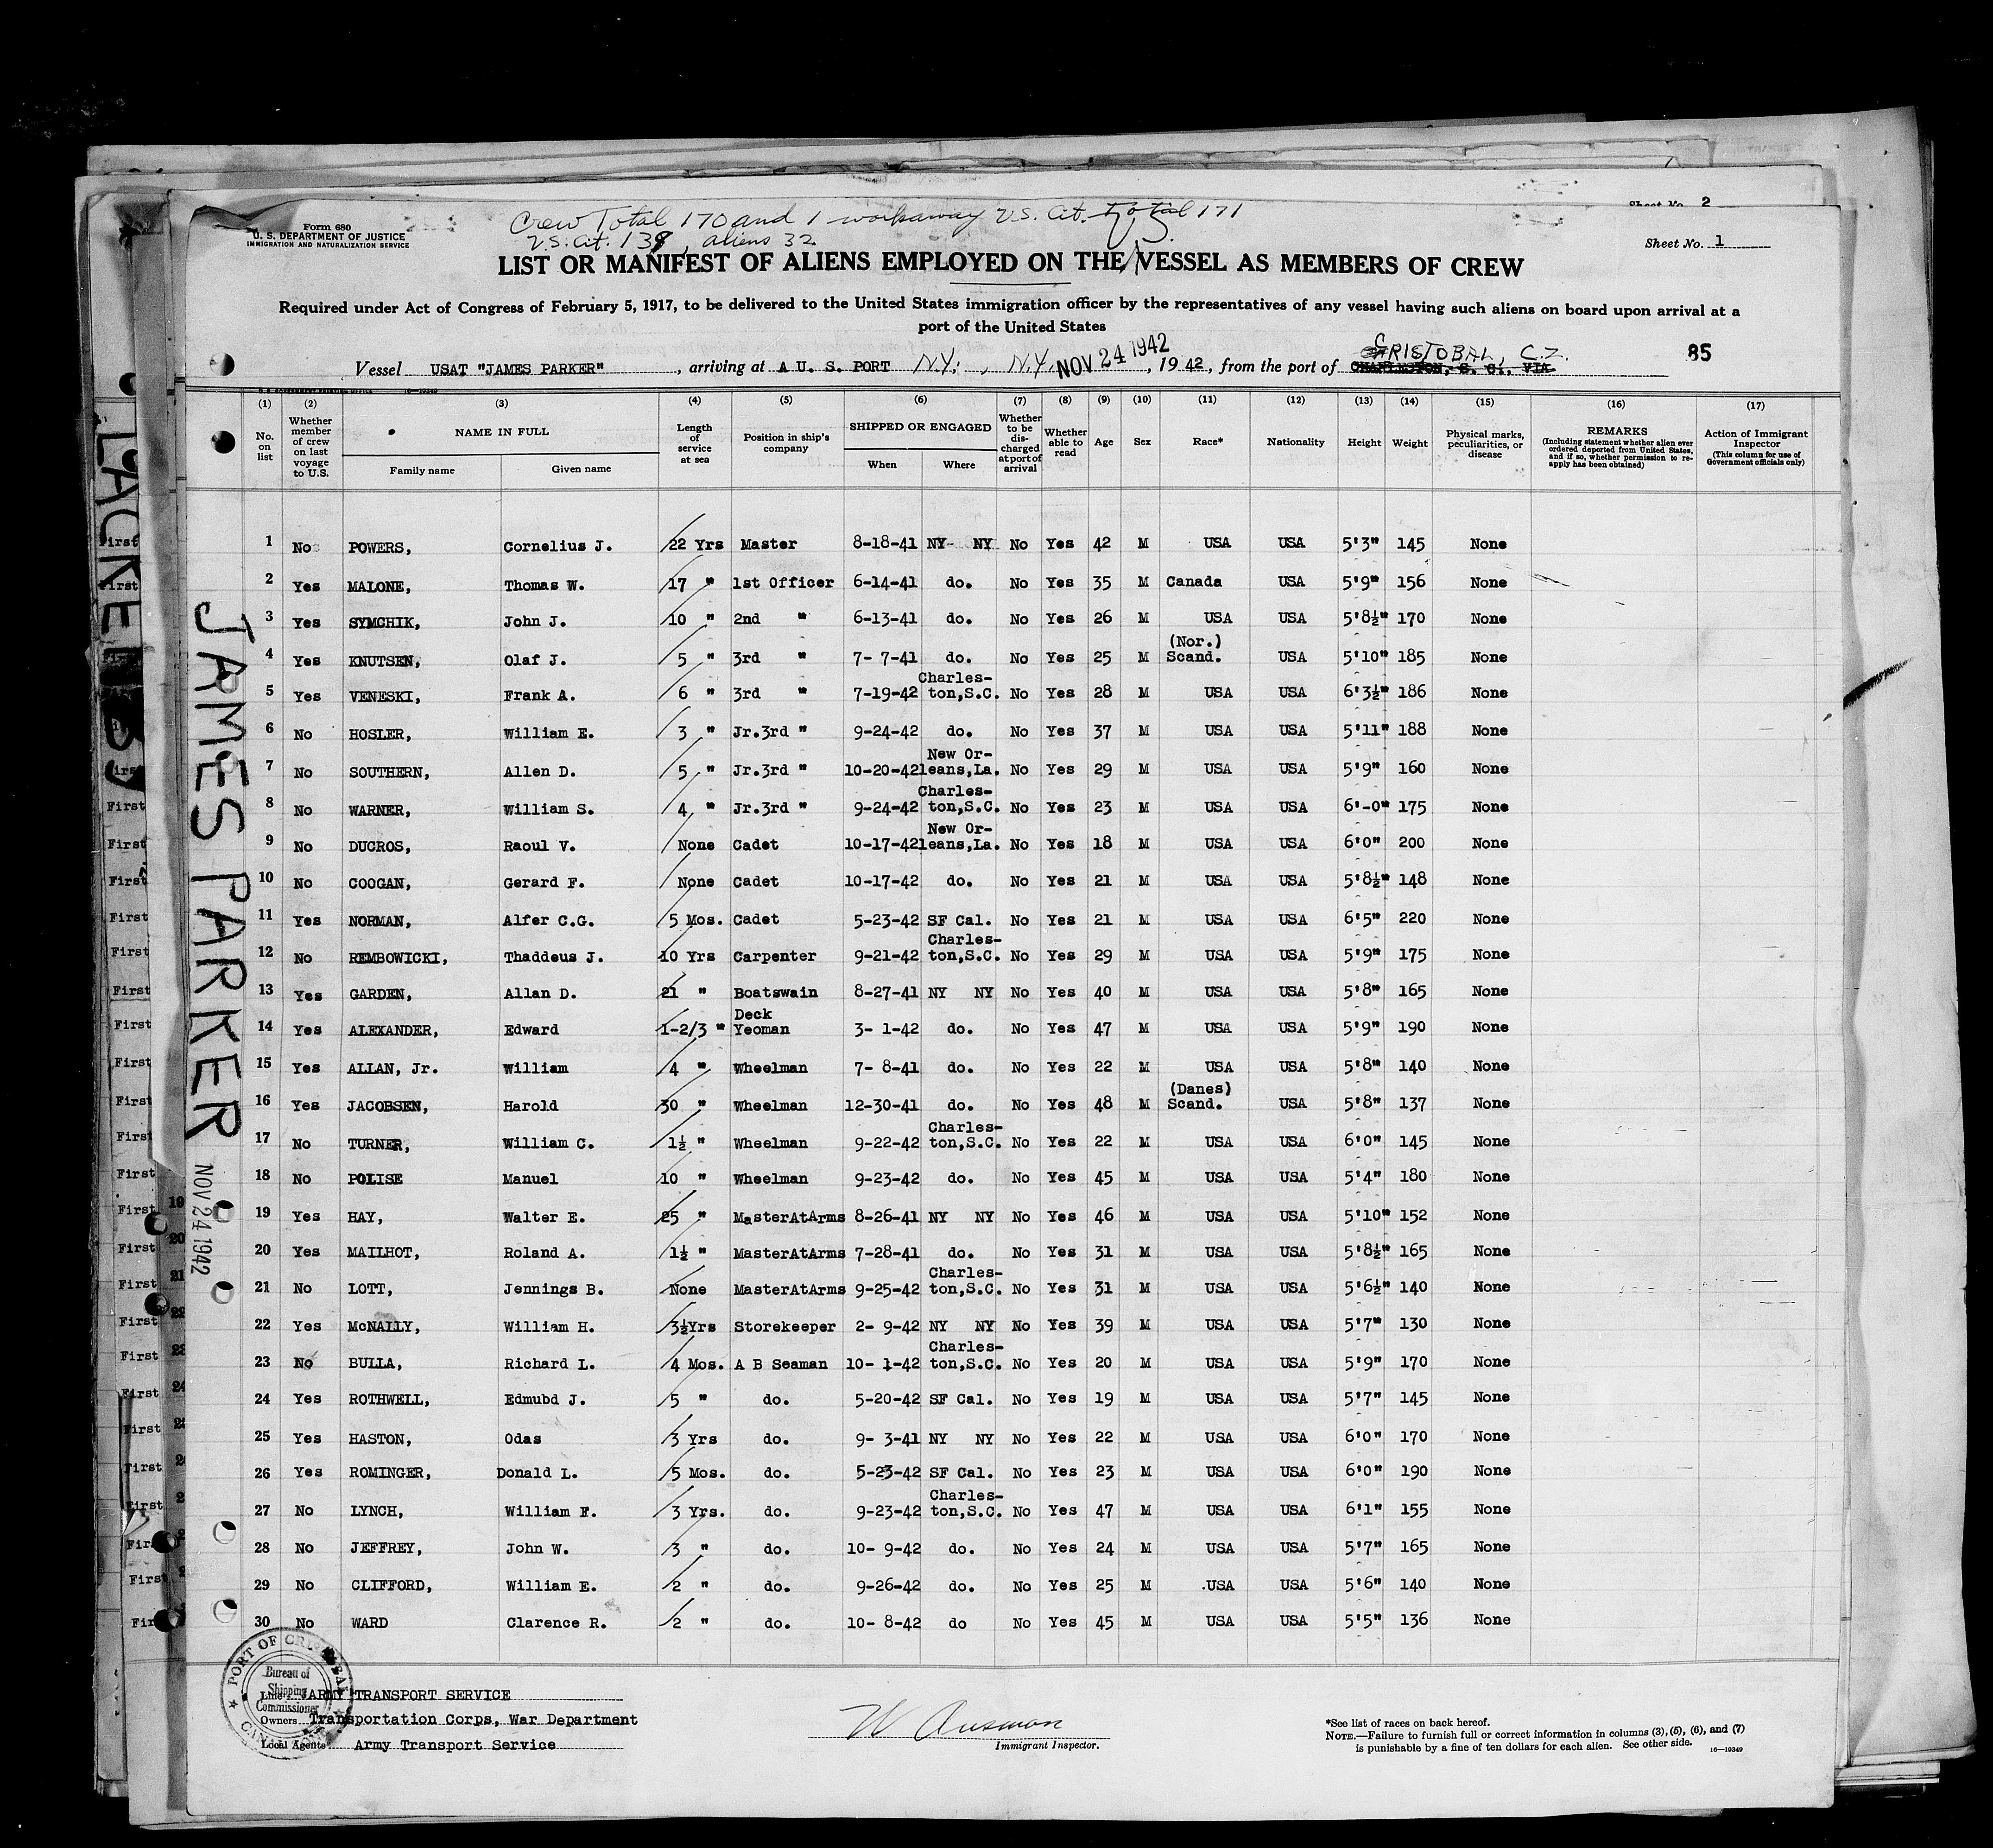 Sheet No. 2
Crew Total 170 and 1 workaway U.S. Cit. total 171
U.S. Cit. 139, aliens 32
Form 680
U. S. DEPARTMENT OF JUSTICE
IMMIGRATION AND NATURALIZATION SERVICE
Sheet No. 1
U.S.
LIST OR MANIFEST OF ALIENS EMPLOYED ON THE VESSEL AS MEMBERS OF CREW
Required under Act of Congress of February 5, 1917, to be delivered to the United States immigration officer by the representatives of any vessel having such aliens on board upon arrival at a
port of the United States
Vessel USAT "JAMES PARKER", arriving at A U. S. PORT N.Y., N.Y. NOV 24 1942, 1942, from the port of CRISTOBAL, C.Z. CHARLESTON, S. C., VIA 85
(1) (2) (3) (4) (5) (6) (7) (8) (9) (10) (11) (12) (13) (14) (15) (16) (17)
No. on list
Whether member of crew on last voyage to U.S.
NAME IN FULL
Family name Given name
Length of service at sea
Position in ship's company
SHIPPED OR ENGAGED
When Where
Whether to be discharged at port of arrival
Whether able to read
Age
Sex
Race*
Nationality
Height
Weight
Physical marks, peculiarities, or disease
REMARKS
(Including statement whether alien ever ordered deported from United States, and if so, whether permission to re-apply has been obtained)
Action of Immigrant Inspector
(This column for use of Government officials only)
1 No POWERS, Cornelius J. 22 Yrs Master 8-18-41 NY NY No Yes 42 M USA USA 5'3" 145 None
2 Yes MALONE, Thomas W. 17 " 1st Officer 6-14-41 do. No Yes 35 M Canada USA 5'9" 156 None
3 Yes SYMCHIK, John J. 10 " 2nd " 6-13-41 do. No Yes 26 M USA USA 5'8½" 170 None
4 Yes KNUTSEN, Olaf J. 5 " 3rd " 7- 7-41 do. No Yes 25 M (Nor.) Scand. USA 5'10" 185 None
5 Yes VENESKI, Frank A. 6 " 3rd " 7-19-42 Charles-ton,S.C. No Yes 28 M USA USA 6'3½" 186 None
6 No HOSLER, William E. 3 " Jr.3rd " 9-24-42 do. No Yes 37 M USA USA 5'11" 188 None
7 No SOUTHERN, Allen D. 5 " Jr.3rd " 10-20-42 New Or-leans,La. No Yes 29 M USA USA 5'9" 160 None
8 No WARNER, William S. 4 " Jr.3rd " 9-24-42 Charles-ton,S.C. No Yes 23 M USA USA 6'-0" 175 None
9 No DUCROS, Raoul V. None Cadet 10-17-42 New Or-leans,La. No Yes 18 M USA USA 6'0" 200 None
10 No COOGAN, Gerard F. None Cadet 10-17-42 do. No Yes 21 M USA USA 5'8½" 148 None
11 Yes NORMAN, Alfer C.G. 5 Mos. Cadet 5-23-42 SF Cal. No Yes 21 M USA USA 6'5" 220 None
12 No REMBOWICKI, Thaddeus J. 10 Yrs Carpenter 9-21-42 Charles-ton,S.C. No Yes 29 M USA USA 5'9" 175 None
13 Yes GARDEN, Allan D. 21 " Boatswain 8-27-41 NY NY No Yes 40 M USA USA 5'8" 165 None
14 Yes ALEXANDER, Edward 1-2/3 " Deck Yeoman 3- 1-42 do. No Yes 47 M USA USA 5'9" 190 None
15 Yes ALLAN, Jr. William 4 " Wheelman 7- 8-41 do. No Yes 22 M USA USA 5'8" 140 None
16 Yes JACOBSEN, Harold 30 " Wheelman 12-30-41 do. No Yes 48 M (Danes) Scand. USA 5'8" 137 None
17 No TURNER, William C. 1½ " Wheelman 9-22-42 Charles-ton,S.C. No Yes 22 M USA USA 6'0" 145 None
18 No POLISE Manuel 10 " Wheelman 9-23-42 do. No Yes 45 M USA USA 5'4" 180 None
19 Yes HAY, Walter E. 25 " MasterAtArms 8-26-41 NY NY No Yes 46 M USA USA 5'10" 152 None
20 Yes MAILHOT, Roland A. 1½ " MasterAtArms 7-28-41 do. No Yes 31 M USA USA 5'8½" 165 None
21 No LOTT, Jennings B. None MasterAtArms 9-25-42 Charles-ton,S.C. No Yes 31 M USA USA 5'6½" 140 None
22 Yes McNALLY, William H. 3½Yrs Storekeeper 2- 9-42 NY NY No Yes 39 M USA USA 5'7" 130 None
23 No BULLA, Richard L. 4 Mos. A B Seaman 10- 1-42 Charles-ton,S.C. No Yes 20 M USA USA 5'9" 170 None
24 Yes ROTHWELL, Edmubd J. 5 " do. 5-20-42 SF Cal. No Yes 19 M USA USA 5'7" 145 None
25 Yes HASTON, Odas 3 Yrs do. 9- 3-41 NY NY No Yes 22 M USA USA 6'0" 170 None
26 Yes ROMINGER, Donald L. 5 Mos. do. 5-23-42 SF Cal. No Yes 23 M USA USA 6'0" 190 None
27 No LYNCH, William F. 3 Yrs. do. 9-23-42 Charles-ton,S.C. No Yes 47 M USA USA 6'1" 155 None
28 No JEFFREY, John W. 3 " do. 10- 9-42 do. No Yes 24 M USA USA 5'7" 165 None
29 No CLIFFORD, William E. 2 " do. 9-26-42 do. No Yes 25 M USA USA 5'6" 140 None
30 No WARD Clarence R. 2 " do. 10- 8-42 do No Yes 45 M USA USA 5'5" 136 None
JAMES PARKER
NOV 24 1942
PORT OF CRISTOBAL
Bureau of Shipping Commissioner
Line ARMY TRANSPORT SERVICE
Owners Transportation Corps, War Department
Local Agents Army Transport Service
W Ausman
Immigrant Inspector.
*See list of races on back hereof.
NOTE.—Failure to furnish full or correct information in columns (3), (5), (6), and (7)
is punishable by a fine of ten dollars for each alien. See other side.
16—19349